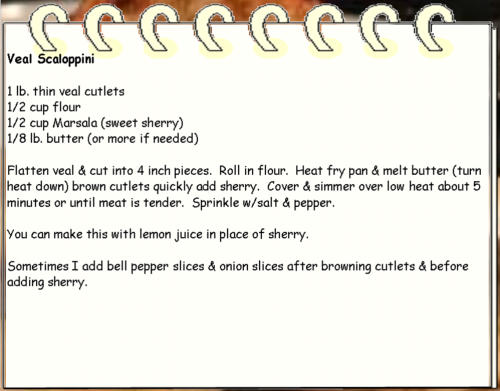 Veal Scaloppini
1 lb. thin veal cutlets
1/2 cup flour
1/2 cup Marsala (sweet sherry)
1/8 lb. butter (or more if needed)
Flatten veal & cut into 4 inch pieces.  Roll in flour.  Heat fry pan & melt butter (turn
heat down) brown cutlets quickly add sherry.  Cover & simmer over low heat about 5
minutes or until meat is tender.  Sprinkle w/salt & pepper.
You can make this with lemon juice in place of sherry.
Sometimes I add bell pepper slices & onion slices after browning cutlets & before
adding sherry.